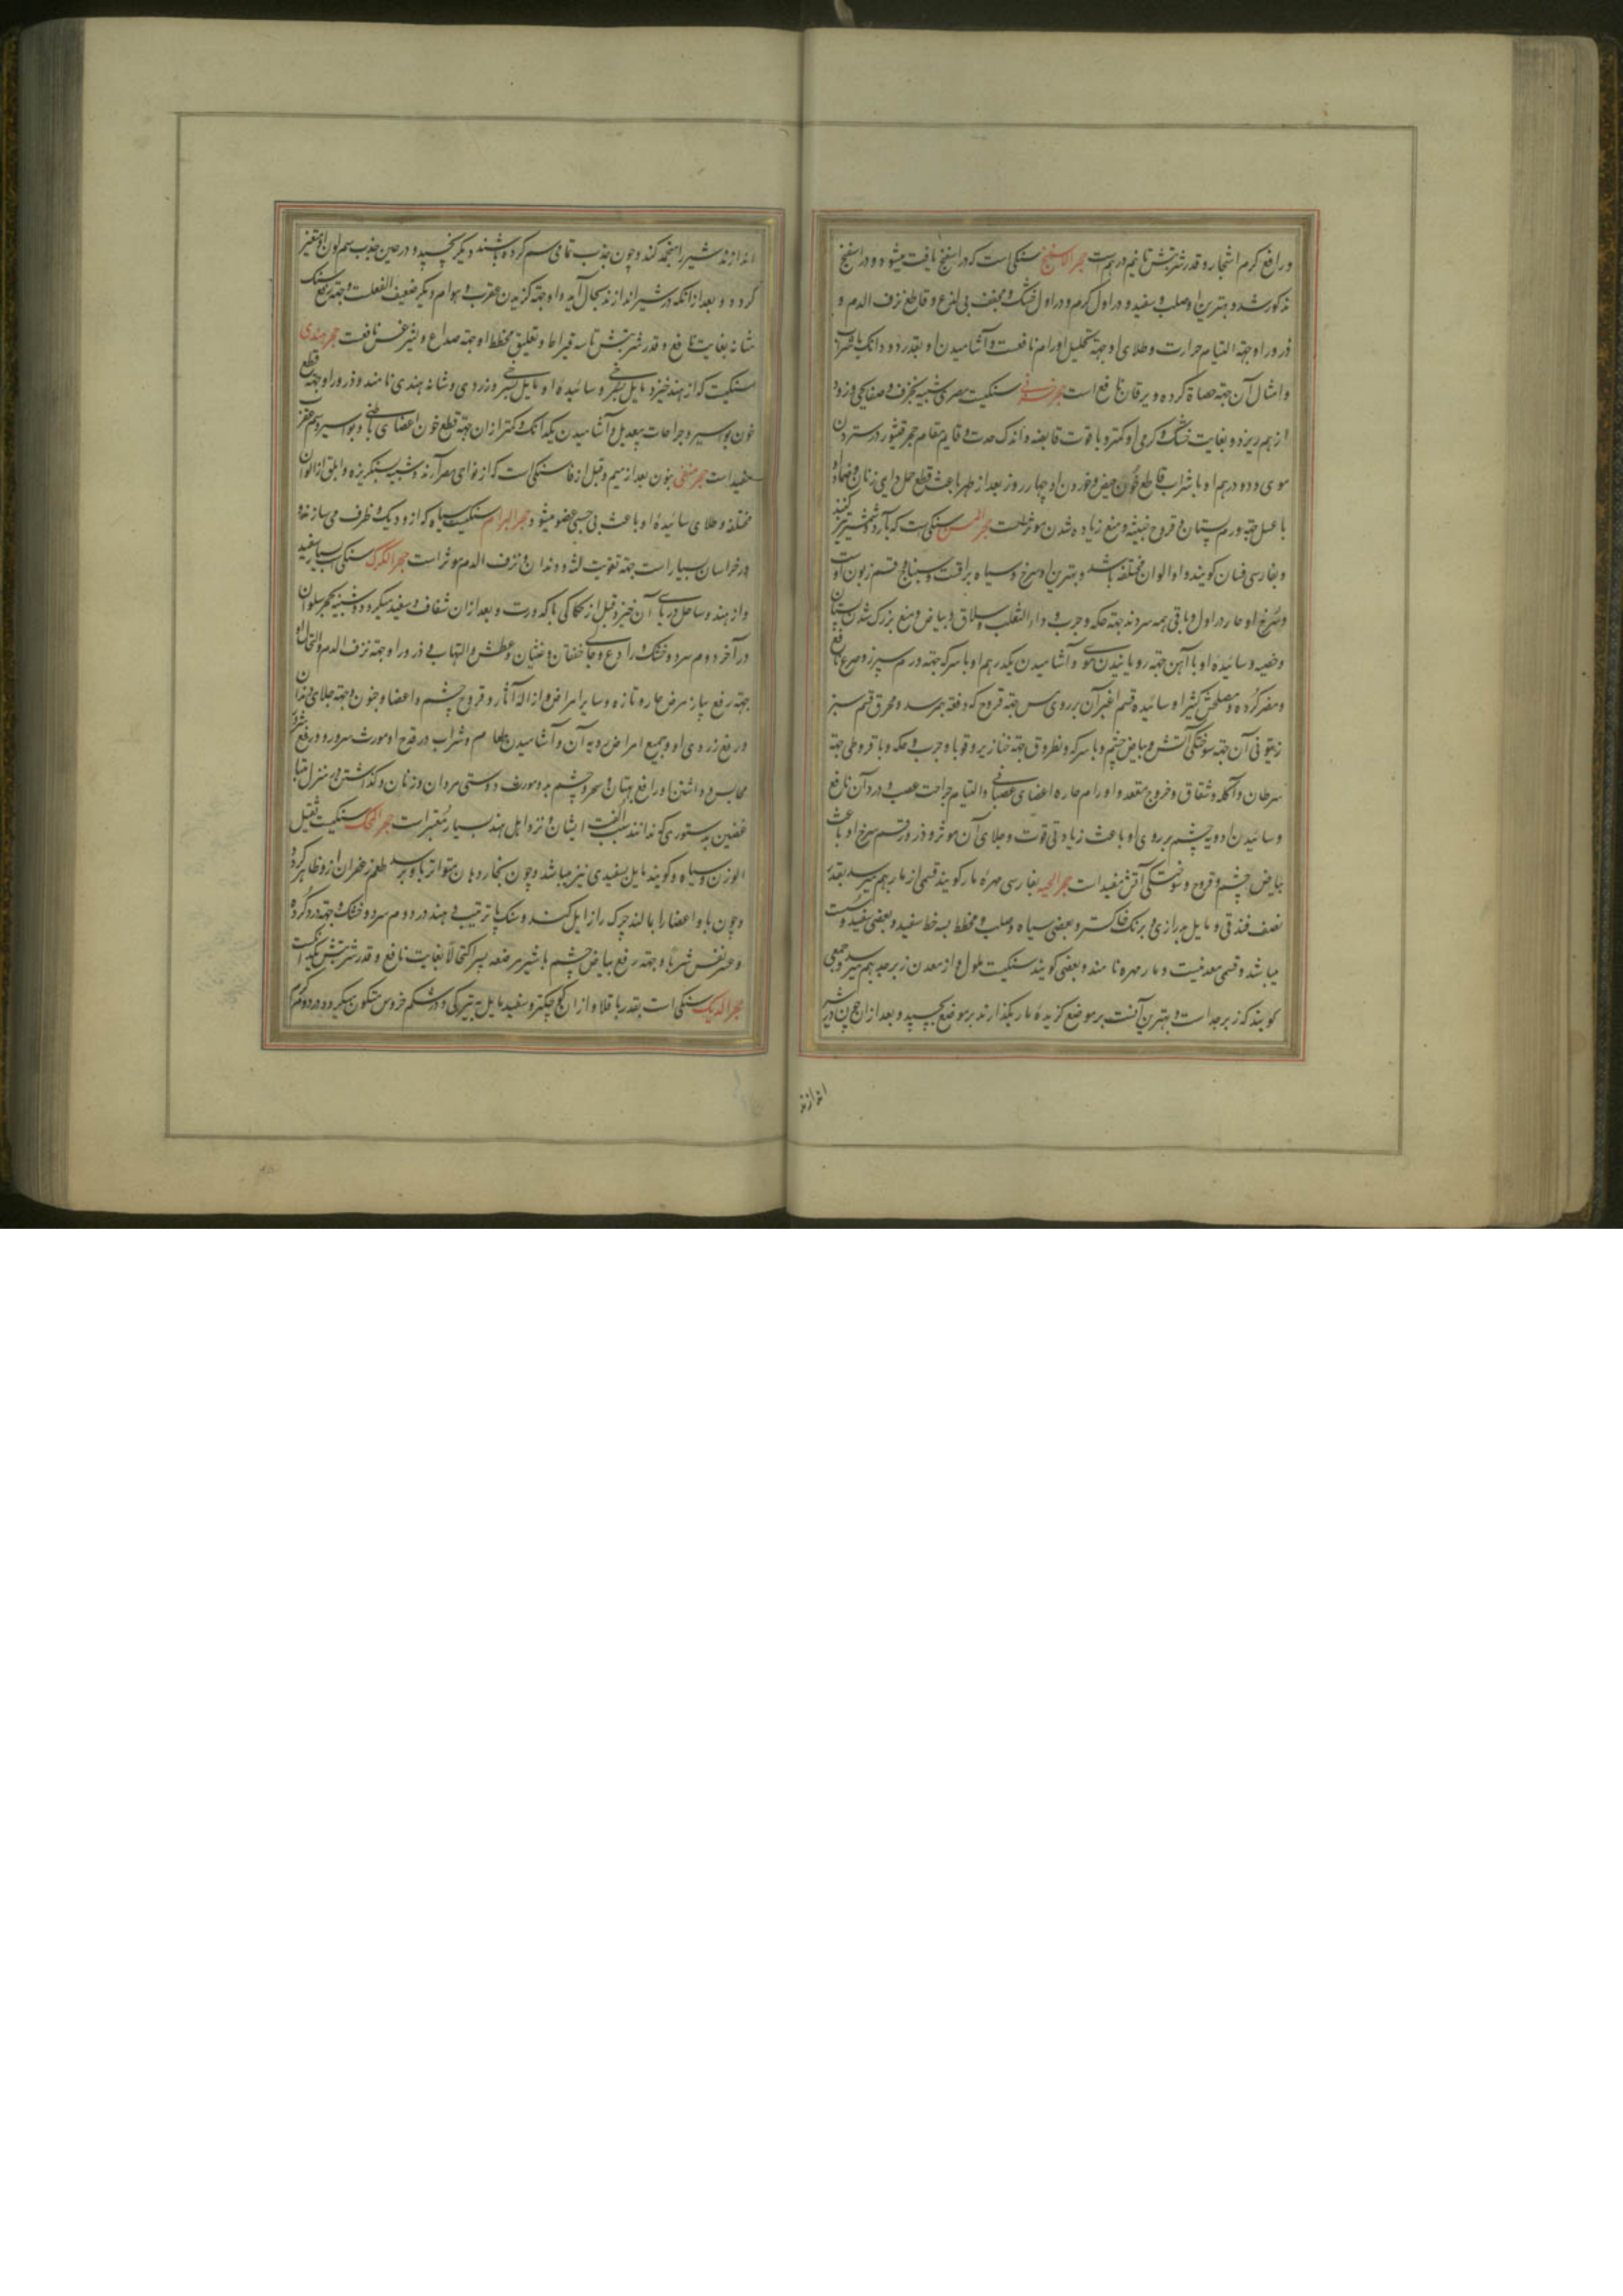 و رافع کرم اشجار و قدر شربتش تا نیم درهم است حجر الاسفنج سنکی است که در اسفنج یافت میشود و در اسفنج
مذکور شد و بهترین او صلب و سفید و در اول کرم و در اول خشک و مجفف بی لذع و قاطع نزف الدم و
ذرور او جهة التیام جراحت و طلای او جهة تحلیل اورام نافعست و آشامیدن او بقدر دو دانک با شراب
و امثال آن جهة حصاة کرده و یرقان نافع است حجر خزفی سنکیست مصری شبیه بخزف و صفایحی و زود
از هم ریزد و بغایت خشک و کرمی او کمتر و با قوت قابضه و اندک حدت و قایم مقام حجر قیشور در ستردن
موی و دو درهم او با شراب قاطع خون حیض و خوردن او چهار روز بعد از طهر باعث قطع حمل دایمی زنان و ضماد او
با عسل جهة ورم پستان و قروح خبیثه و منع زیاده شدن موثر است حجر المسن سنکی است که کارد و شمشیر تیز کنند
و بفارسی فسان کویند و او الوان مختلفه باشد و بهترین او سرخ و سیاه براقست و سبناج قسم زبون اوست
و سرخ او حار در اول و باقی همه سردند جهة حکه و جرب و داء الثعلب و سلاق و بیاض و منع بزرک شدن پستان
و خصیه و سائیده او با آهن جهة رویانیدن موی و آشامیدن یکدرهم او با سرکه جهة ورم سپرز و صرع نافع
و مضر کرده و مصلحش کثیرا و سائیده قسم اغبر آن بر روی مس جهة قروح که دفعة بهمرسد و محرق قسم سبز
زیتونی آن جهة سوختکی آتش و بیاض چشم و با سرکه و نطرون جهة خنازیر و قوبا و جرب و حکه و با قیروطی جهة
سرطان و آکله و شقاق و خروج مقعد و اورام حاره اعضای عصبانی و التیام جراحت عصب و درد آن نافع
و سائیدن ادویه چشم بر روی او باعث زیادتی قوت و جلای آن موثر و ذرور قسم سرخ او باعث
بیاض چشم و قروح و سوختکی آتش مفید است حجر الحیه بفارسی مهره مار کویند قسمی از مار بهم میرسد بقدر
نصف فندقی و مایل بدرازی و برنک خاکستر و بعضی سیاه و صلب و مخطط بسه خط سفید و بعضی سفید و سست
میباشد و قسمی معدنیست و مار مهره نامند و بعضی کویند سنکیست ملون و از معدن زبرجد بهم میرسد و جمعی
کویند که زبرجد است و بهترین آنست بر موضع کزیده مار بکذارند بر موضع بچسپد و بعد از آن چون در شیر
اندازند
اندازند شیر را منجمد کند و چون جذب تمامی سم کرده باشد دیکر نچسپد و در حین جذب سم لون او متغیر
کردد و بعد از آنکه در شیر اندازند بحال آید و او جهة کزیدن عقرب و هوام دیکر ضعیف الفعلست و جهة رفع سنک
مثانه بغایت نافع و قدر شربتش تا سه قیراط و تعلیق مخطط او جهة صداع و لیثرغس نافعست حجر هندی
سنکیست که از هند خیزد مایل بسرخی و سائیده او مایل بسرخی و زردی و شانه هندی نامند و ذرور او جهة قطع
خون بواسیر و جراحات بیعدیل و آشامیدن یکدانک و کمتر از آن جهة قطع خون اعضای باطنی و بواسیر و سم عقرب
مفید است حجر منفی بنون بعد از میم و قبل از فا سنکی است که از نواحی مصر آرند و شبیه بسنکریزه و ابلق از الوان
مختلفه و طلای سائیده او باعث بی حسی عضو میشود حجر البرام سنکیست سیاه که از او دیک و ظرف می سازند و
در خراسان بسیار است جهة تقویت لثه و دندان و نزف الدم موثر است حجر الکرک سنکی است بسیار سفید
و از هند و ساحل دریای آن خیزد قبل از حکاکی با کدورت و بعد از آن شفاف و سفید میکردد و شبیه بحجر سلوان
در آخر دوم سرد و خشک و رادع و حابس خفقان و غثیان و عطش و التهاب و ذرور او جهة نزف الدم و اکتحال او
جهة رفع بیاض مرض حاره تازه و سایر امراض و ازاله آثار و قروح چشم و اعضا و جنون و جهة جلای دندان
و رفع زردی او و جمیع امراض و آشامیدن طعام و شراب در قدح او مورث سرور و رفع شر
محابس و داشتن او رافع بهتان و سحر و چشم بد و مورث دوستی مردان و زنان و کذاشتن در منزل متباغضین
غضین بدستوری که ندانند سبب الفت ایشان و نزد اهل هند بسیار معتبر است حجر المحک سنکیست ثقیل
الوزن و سیاه و کویند مایل بسفیدی نیز میباشد و چون بخار دهان متواتر باو برسد طعم زعفران از او ظاهر کردد
و چون با او اعضا را بمالند چرک را زایل کند و سنک پا ترتیب دهند در دوم سرد و خشک و جهة درد کرده
و عسر نفس شربا و جهة رفع بیاض چشم با شیر مرضعه پسر اکتحالا بغایت نافع و قدر شربتش یکدانک است
حجر الدیک سنکی است بقدر باقلا و از آن کوچکتر و سفید مایل به تیرکی و در شکم خروس متکون میکردد در دوم کرم